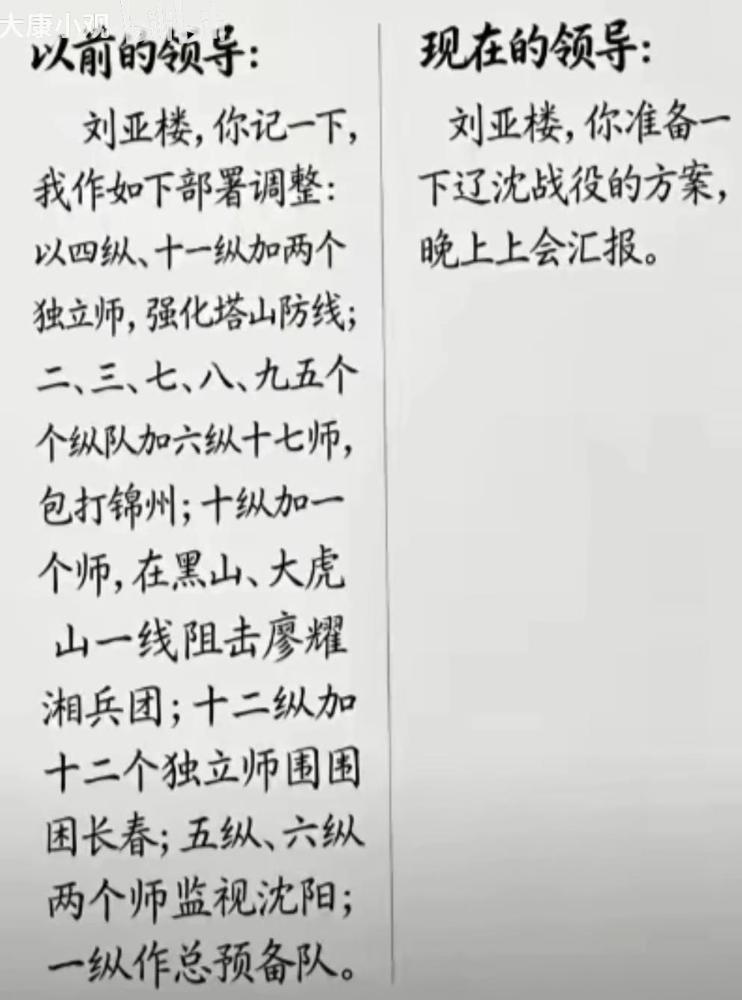 大康小观
以前的领导：
刘亚楼，你记一下，
我作如下部署调整：
以四纵、十一纵加两个
独立师，强化塔山防线；
二、三、七、八、九五个
个纵队加六纵十七师，
包打锦州；十纵加一
个师，在黑山、大虎
山一线阻击廖耀
湘兵团；十二纵加
十二个独立师围围
困长春；五纵、六纵
两个师监视沈阳；
一纵作总预备队。
现在的领导：
刘亚楼，你准备一
下辽沈战役的方案，
晚上上会汇报。